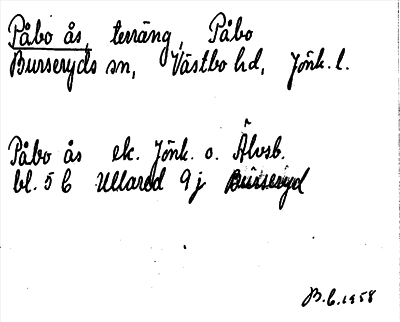 Påbo ås, terräng, Påbo
Burseryds sn, Västbo hd, Jönk. l.
Påbo ås ek. Jönk. o. Älvsb.
bl. 5 C Ullared 9 j Burseryd
B. C. 1958